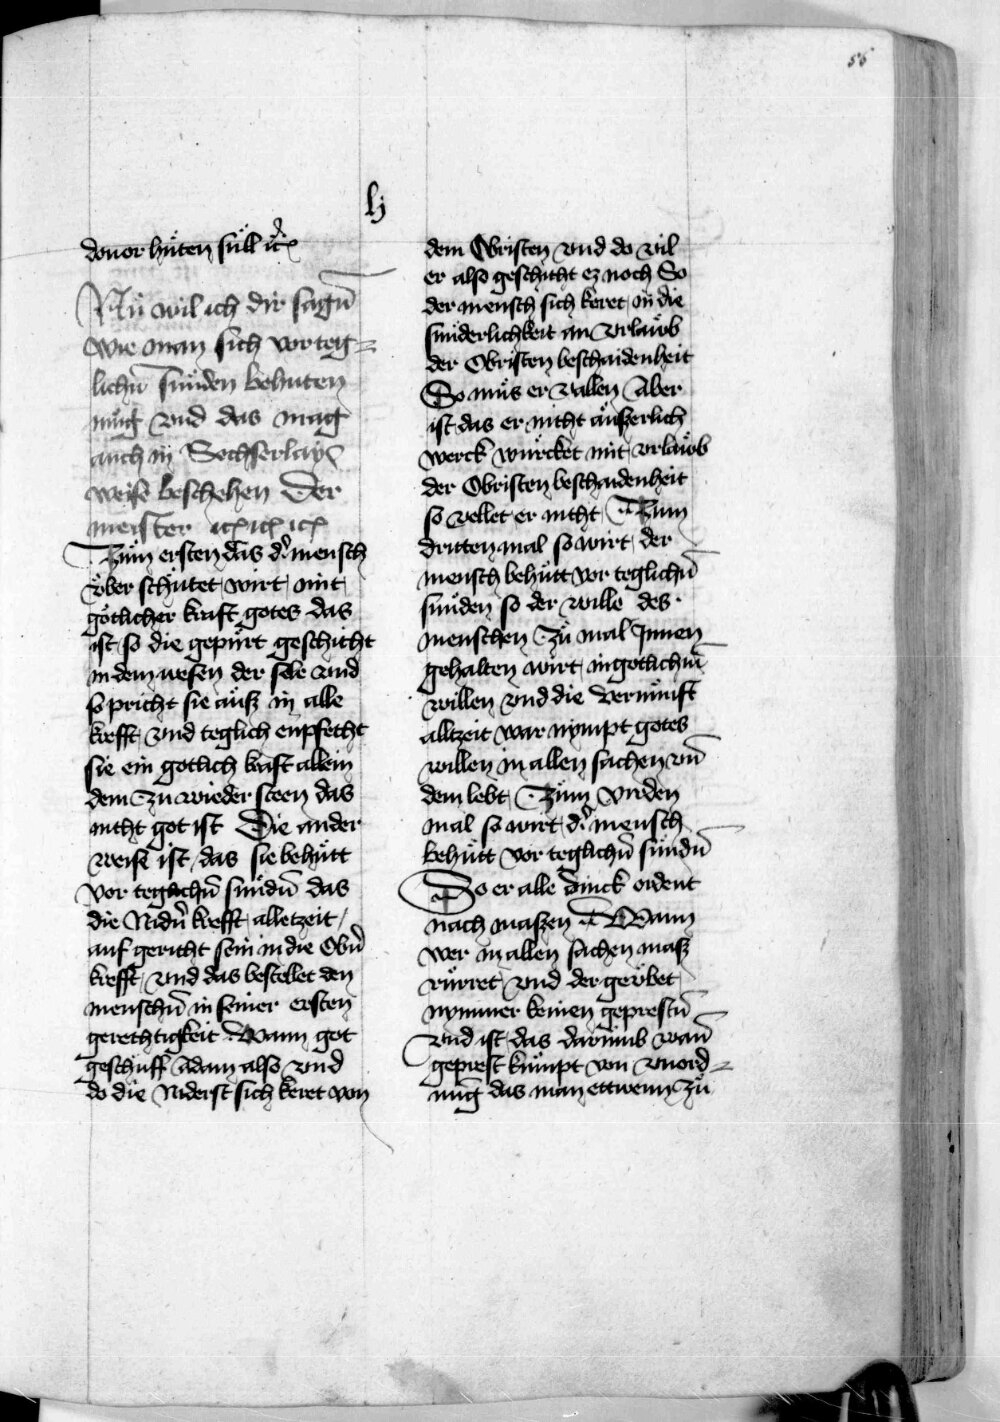 56
lj
douor hüten süll ꝛc
Nü wil ich dir sagn̄
wie man sich vor teg=
lichn̄ sünden behuten
müg vnd das mag
auch in Sechserlay
weise beschehen Der
meister ꝛc ꝛc ꝛc
Zum ersten das d' mensch
vber schütet wirt mit
götlicher kraft gotes das
ist so die gepurt geschicht
in dem wesen der sele vnd
spricht sie auß in alle
krefft vnd teglich enpfecht
sie ein gotlich kraft allein
dem zu wieder steen das
nicht got ist Die ander
weise ist das sie behütt
vor teglichn̄ sündn̄ das
die Nidn̄ krefft alletzeit
auf gericht sein in die Obn̄
krefft vnd das bestellet den
menschn̄ in seiner ersten
gerechtigkeit Wann got
geschuff Adam also vnd
do die Niderst sich keret von
dem Obristen vnd do viel
er also geschicht ez noch So
der mensch sich keret in die
sünderlichkeit an vrlaub
der Obristen beschaidenheit
So müs er vallen Aber
ist das er nicht äußerlich
werck würcket mit vrlaub
der Obristen beschaidenheit
so vellet er nicht Zum
dritten mal so wirt der
mensch behütt vor teglichn̄
sünden so der wille des
menschen Zu mal Innen
gehalten wirt in gotlichm̄
willen vnd die vernünft
alltzeit war nympt gotes
willen in allen sachen vn̄
dem lebt Zum virden
mal so wirt d' mensch
behütt vor teglichn̄ sündn̄
So er alle dinck ordent
nach maßen Wann
wer in allen sachen maß
rürret vnd der geübet
nymmer keinen geprestn̄
vnd ist das darumb wan̄
geprest kumpt von vnord=
nug̅ das man ettwenn zu